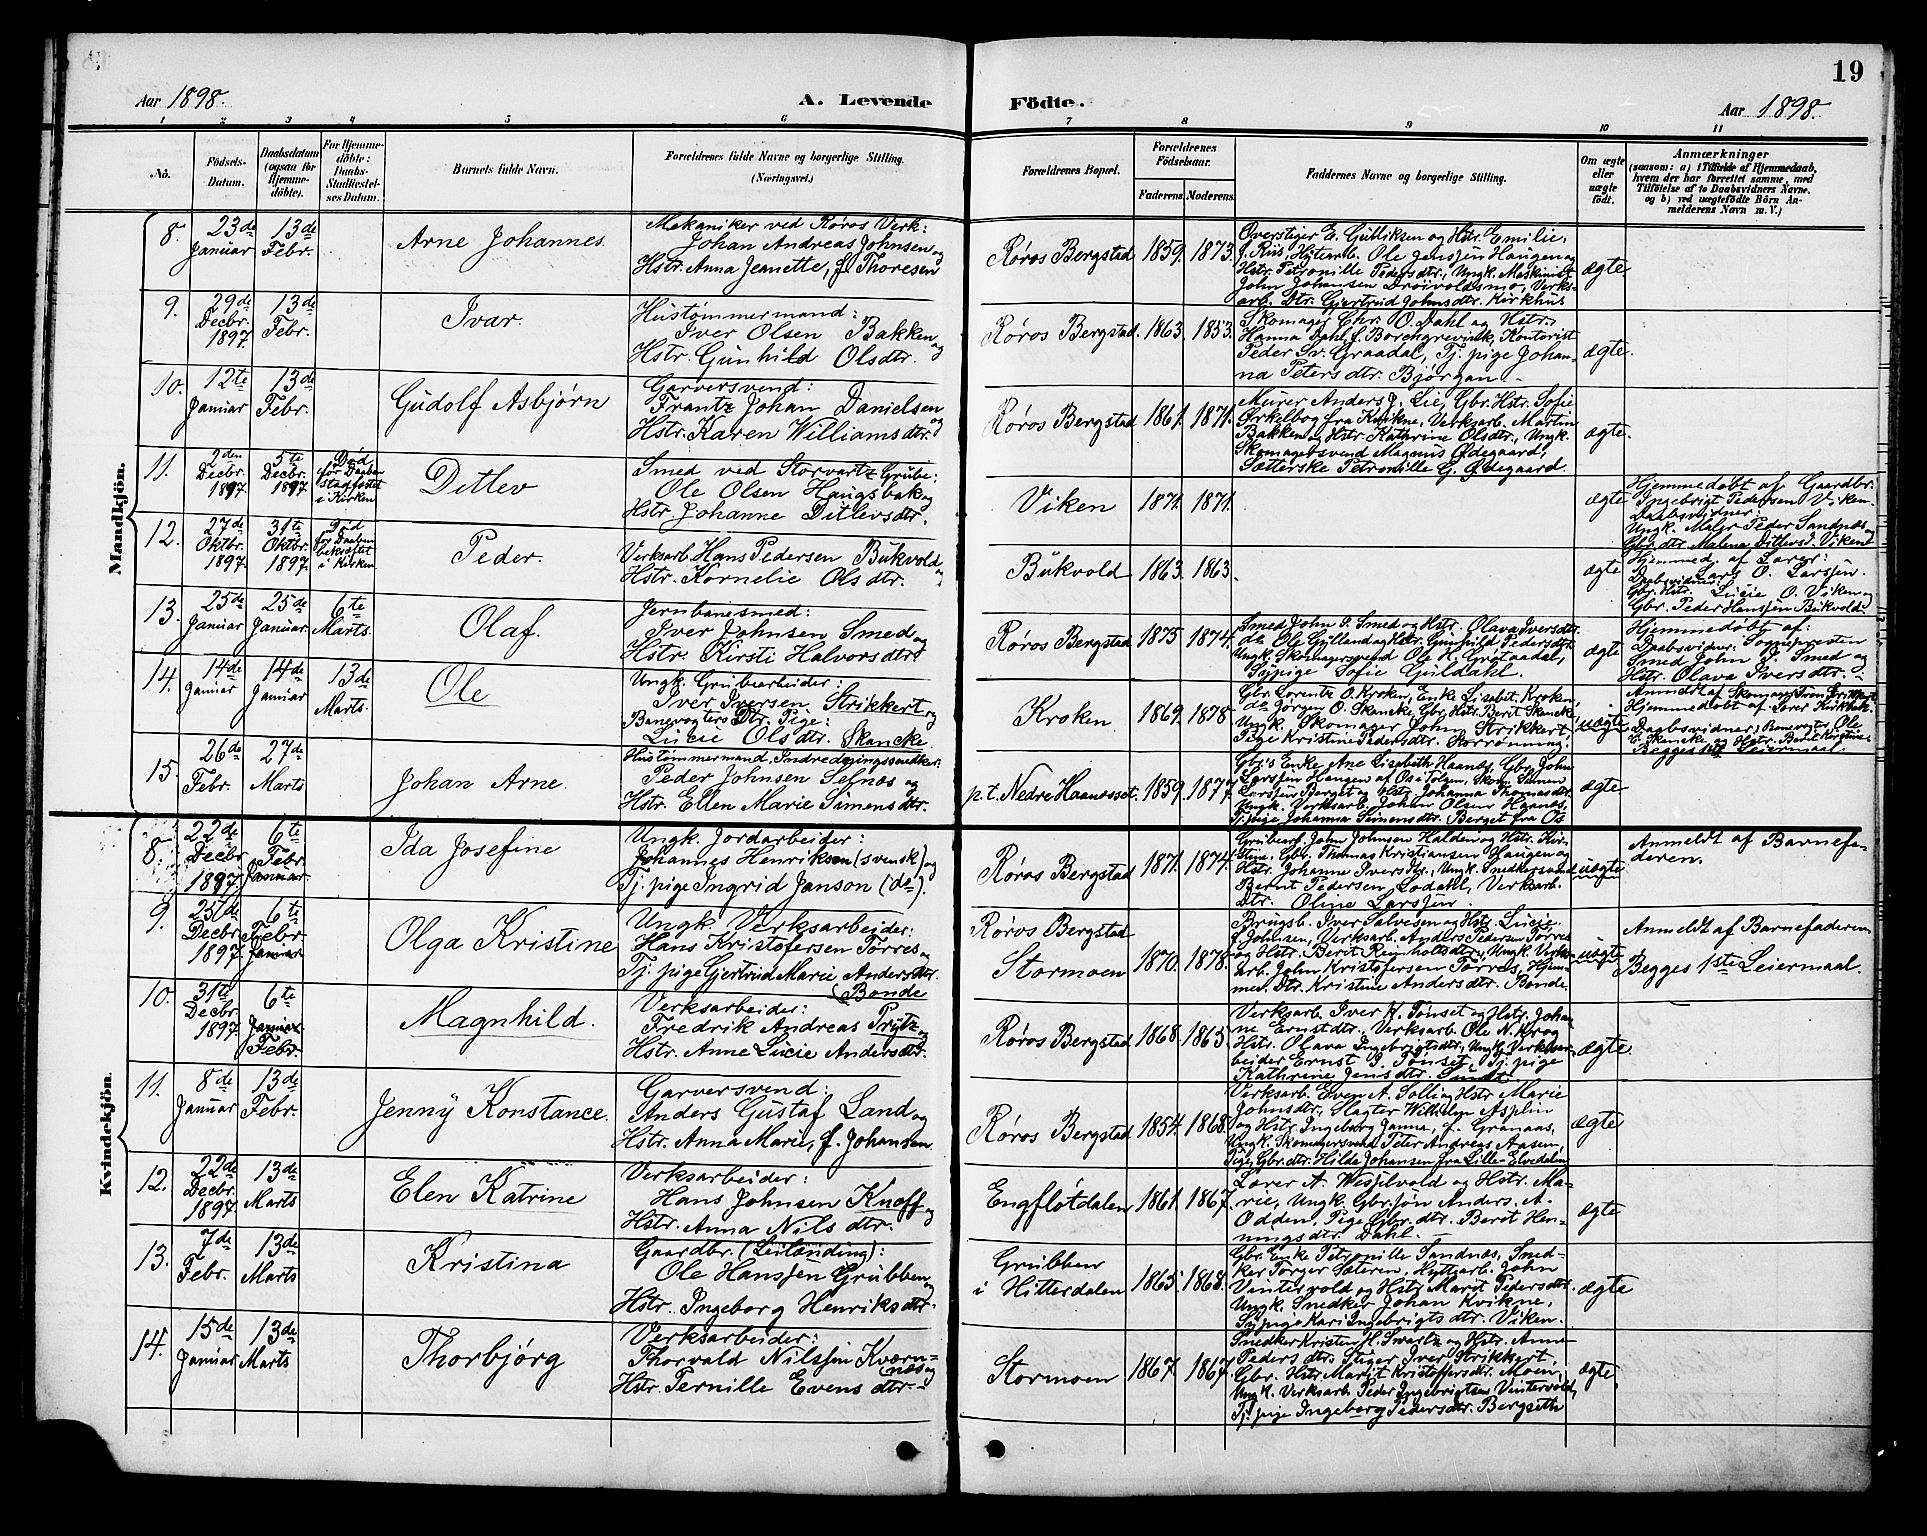 19
Aar 1898.
A. Levende
Födte.
Aar 1898.
1 2 3 4 5 6 7 8 9 10 11
No.
Födsels-Datum.
Daabsdatum (ogsaa for Hjemmedöbte).
For Hjemmedöbte: Daabs-Stadfæstelses Datum.
Barnets fulde Navn.
Forældrenes fulde Navne og borgerlige Stilling.
(Næringsvei.)
Forældrenes Bopæl.
Forældrenes Födselsaar.
Faderens. Moderens.
Faddernes Navne og borgerlige Stilling.
Om ægte eller uægte födt.
Anmærkninger
(saasom: a) i Tilfælde af Hjemmedaab,
hvem der har forrettet samme, med
Tilföielse af to Daabsvidners Navne.
og b) ved uægtefödte Börn Anmelderens Navn m. V.)
Mandkjön.
8. 23de Januar 13de Febr. Arne Johannes.
Mekaniker ved Røros Verk:
Johan Andreas Johnsen og
Hstr. Anna Jeanette, f. Thoresen
Røros Bergstad 1859. 1873.
Overstiger E. Gulliksen og Hstr. Emilie,
f. Riis, Hytearb. Ole Jenssen Haugen og
Hstr. Petronille Pedersdtr., Ungk. Maskinist
John Johansen Drøivoldsmo, Verks-
arb. Dtr. Gjertrud Johnsdtr. Kirkhus
ægte
9. 29de Decbr. 1897 13de Febr. Ivar.
Hustømmermand:
Iver Olsen Bakken og
Hstr. Gunhild Olsdtr.
Røros Bergstad 1863. 1853.
Skomager Chr. O. Dahl og Hstr.
Hanna Dahl, f. Borchgrevink, Kontorist
Peder Sv. Graadal, Tj. pige Johan-
na Petersdtr. Bjørgan.
ægte.
10. 12te Januar 13de Febr. Gudolf Asbjørn
Garversvend:
Frantz Johan Danielsen og
Hstr. Karen Williamsdtr.
Røros Bergstad 1861. 1871.
Murer Anders J. Lie, Gbr. Hstr. Sofie
Ørkelbog fra Kvikne, Verksarb. Martin
Bakken og Hstr. Kathrine Olsdtr., Ungk.
Skomagersvend Magnus Ødegaard,
Sætterske Petronille G. Ødegaard.
ægte.
11. 2den Decbr. 1897 5te Decbr. 1897 Død før Daaben stadfæstet i Kirken Ditlev
Smed ved Storvartz Grube:
Ole Olsen Haugsbak og
Hstr. Johanne Ditlevsdtr.
Viken 1871. 1871.
ægte
Hjemmedøbt af Gaardbr.
Ingebrigt Pedersen Viken.
Daabsvidner:
Ungk. Maler Peder Sandnæs og
Gbr. dtr. Malena Ditlevsd. Viken
12. 27de Oktbr. 1897 31te Oktbr. 1897. Død før Daaben bekræftet i Kirken Peder.
Verksarb. Hans Pedersen Bukvold og
Hstr. Kornelie Olsdtr.
Bukvold 1863. 1863.
ægte
Hjemmed. af Lærer:
Lars O. Larssen.
Daabsvidner:
Gbr. Hstr. Lucie O. Viken og
Gbr. Peder Hanssen Bukvold
13. 25de Januar 25de Januar 6te Marts. Olaf.
Jernbanesmed:
Iver Johnsen Smed og
Hstr. Kirsti Halvorsdtr.
Røros Bergstad 1875 1874.
Smed John P. Smed og Hstr. Olava Iversdtr.
do Ole Gulland og Hstr. Gunhild Pedersdtr.
Ungk. Skomagersvend Ole H. Grøtaadal,
Sypige Sofie Guldahl.
ægte
Hjemmedøbt af:
Sognepresten
Daabsvidner:
Smed John P. Smed og
Hstr. Olava Iversdtr.
14. 14de Januar 14de Januar 13de Marts. Ole
Ungk. Grubearbeider:
Iver Iversen Strikkert og
Banevogters Dtr. Pige:
Lucie Olsdtr. Skancke.
Kroken 1869. 1878.
Gbr. Lorentz O. Kroken, Enke Lisebet Kroken
do Jørgen O. Skancke, Gbr. Hstr. Berit Skancke,
Ungk. Skomager John Strikkert.
Pige Kristine Pedersdtr. Storrønning.
uægte
Hjemmedøbt af Lærer Kirkbak
Daabsvidner: Banevogter Ole
E. Skancke og Hstr. Berit Kirstine
Begges 1ste Leiermaal.
15. 26de Febr. 27de Marts Johan Arne.
Hustømmermand, Indredningssnedker:
Peder Johnsen Sefnos og
Hstr. Ellen Marie Simensdtr.
p.t. Nedre Haanæsset. 1859. 1877.
Gbr's Enke Ane Lisebeth Haanæs, Gbr. John
Larssen Haugen af Os i Tolgen, Skom. Simen
Larssen Berget og Hstr. Johanna Thomasdtr.
Ungk. Verksarb. Johan Olsen Haanæs,
Tj. pige Johanna Simensdtr. Berget fra Os
ægte
Kvindekjön.
8. 22de Decbr. 1897 6te Febr. Januar Ida Josefine
Ungk. Jordarbeider:
Johannes Henriksen (svensk) og
Tj. pige Ingrid Janson (do).
Røros Bergstad 1871. 1874.
Grubearb. John Johnsen Halden og Hstr. Kir-
stine, Gbr. Thomas Kristiansen Haugen og
Hstr. Johanna Iversdtr., Ungk. Snedkersvend
Bernt Pedersen Lodahl, Verksarb.
Dtr. Oline Larssen.
uægte
Anmeldt af Barnefa-
deren.
9. 25de Decbr. 1897. 6te Febr. Januar Olga Kristine
Ungk. Verksarbeider:
Hans Kristofersen Tørres og
Tj. pige Gjertrud Marie Andersdtr.
(Bonde
Røros Bergstad
Stormoen 1870. 1878.
Brugsb. Iver Salvesen og Hstr. Lucie
Johnsen, Verksarb. Anders Pedersen Tørres
og Hstr. Berit Reinholdsdtr., Ungk. Verks-
arb. John Kristofersen Tørres, Hjem-
mev. Dtr. Kristine Andersdtr. Bonde.
uægte
Anmeldt af Barnefaderen.
Begges 1ste Leiermaal.
10. 31te Decbr. 1897 6te Januar Febr. Magnhild.
Verksarbeider:
Fredrik Andreas Prytz og
Hstr. Anne Lucie Andersdtr.
Røros Bergstad 1868. 1865.
Verksarb. Iver K. Tønset og Hstr. Johan-
ne Ernstdtr., Verksarb. Ole N. Krog
Hstr. Olava Ingebrigtsdtr., Ungk. Verksar-
beider Ernst I. Tønset, Tj. pige
Kathrine Jensdtr. Sundt
ægte
11. 8de Januar 13de Febr. Jenny Konstance.
Garversvend:
Anders Gustaf Land og
Hstr. Anna Marie, f. Johansen
Røros Bergstad 1854. 1868.
Verksarb. Even A. Solli og Hstr. Marie
Johnsdtr., Slagter Wilhelm Asplin
og Hstr. Ingeborg Janna, f. Granaas,
Ungk. Skomagersvend Peter Andreas Aasen,
Pige, Gbr. dtr. Hilda Johansen fra Lille Elvedalen
ægte
12. 22de Decbr. 1897 13de Marts Elen Katrine
Verksarbeider:
Hans Johnsen Knoff og
Hstr. Anna Nilsdtr.
Engfløtdalen 1861. 1867.
Lærer A. Wesselvold og Hstr. Ma-
rie, Ungk. Gbr. søn Anders A.
Odden, Pige Gbr. dtr. Berit Hen-
ningsdtr. Dahl.
ægte
13. 7de Febr. 13de Marts Kristina
Gaardbr. (Leilænding):
Ole Hanssen Grubben og
Hstr. Ingeborg Henriksdtr.
Grubben
i Hitterdalen 1865. 1868.
Gbr. Enke Petronille Sandnæs, Sned-
ker Torger Sæteren, Hyttearb. John
Vintervold og Hstr. Marit Pedersdtr.
Ungk. Snedker Johan Kvikne,
Sypige Kari Ingebrigtsdtr. Viken.
ægte
14. 15de Januar 13de Marts Thorbjørg
Verksarbeider:
Thorvald Nilssen Kværn-
næs og
Hstr. Pernille Evensdtr.
Stormoen 1867. 1867.
Snedker Kristen H. Swartz og Hstr. Anne
Pedersdtr., Stiger Iver Strikkert,
Gbr. Hstr. Marit Kristoffersdtr. Moen,
Ungk. Verksarb. Peder Ingebrigtsen Vintervold,
Tj. pige Ingeborg Pedersdtr. Bergseth
ægte.